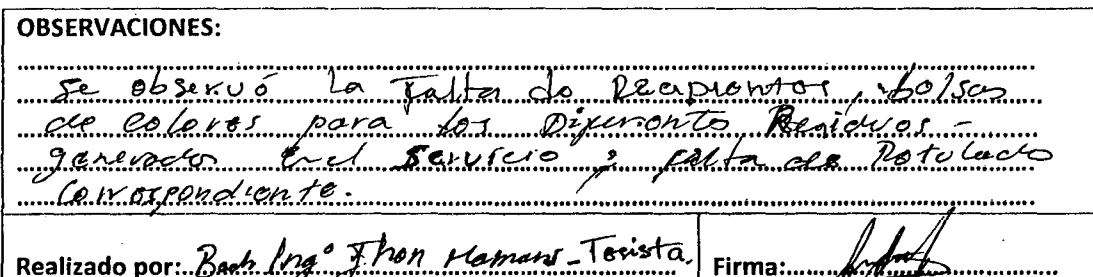 OBSERVACIONES:
Se observó La Falta de Recipientes, bolsas
de colores para los Diferente Residuos -
generados en el servicio ; falta de Rotulado
Correspondiente.
Realizado por: Bach Ingº Jhon Mamani - Tesista. Firma: